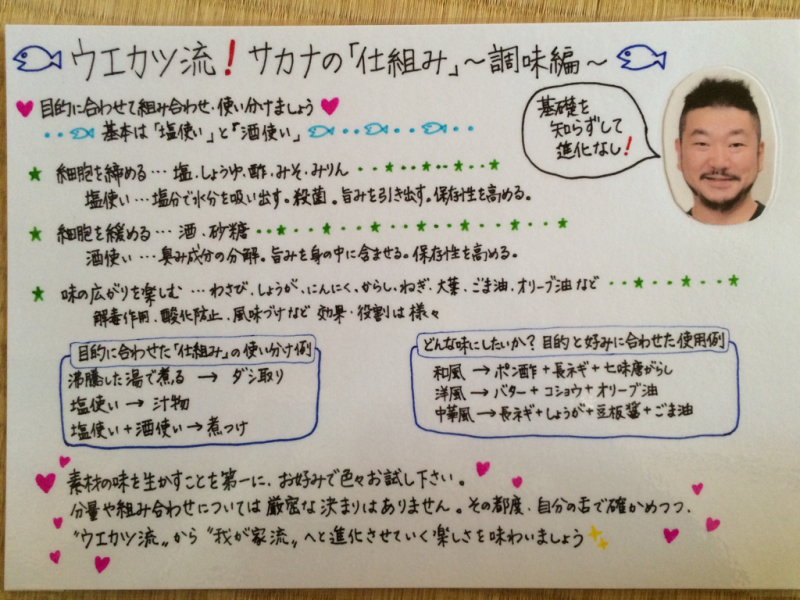 ウエカツ流!サカナの「仕組み」～調味編～
目的に合わせて組み合わせ・使い分けましょう
基本は「塩使い」と「酒使い」
基礎を
知らずして
進化なし!
細胞を締める…塩、しょうゆ、酢、みそ、みりん
塩使い…塩分で水分を吸い出す。殺菌。旨みを引き出す。保存性を高める。
細胞を緩める…酒、砂糖
酒使い…臭み成分の分解。旨みを身の中に含ませる。保存性を高める。
味の広がりを楽しむ…わさび、しょうが、にんにく、からし、ねぎ、大葉、ごま油、オリーブ油など
解毒作用、酸化防止、風味づけなど 効果・役割は様々
目的に合わせた「仕組み」の使い分け例
沸騰した湯で煮る → ダシ取り
塩使い → 汁物
塩使い+酒使い → 煮つけ
どんな味にしたいか?目的と好みに合わせた使用例
和風 → ポン酢+長ネギ+七味唐がらし
洋風 → バター+コショウ+オリーブ油
中華風 → 長ネギ+しょうが+豆板醤+ごま油
素材の味を生かすことを第一に、お好みで色々お試し下さい。
分量や組み合わせについては厳密な決まりはありません。その都度、自分の舌で確かめつつ、
〝ウエカツ流〟から〝我が家流〟へと進化させていく楽しさを味わいましょう